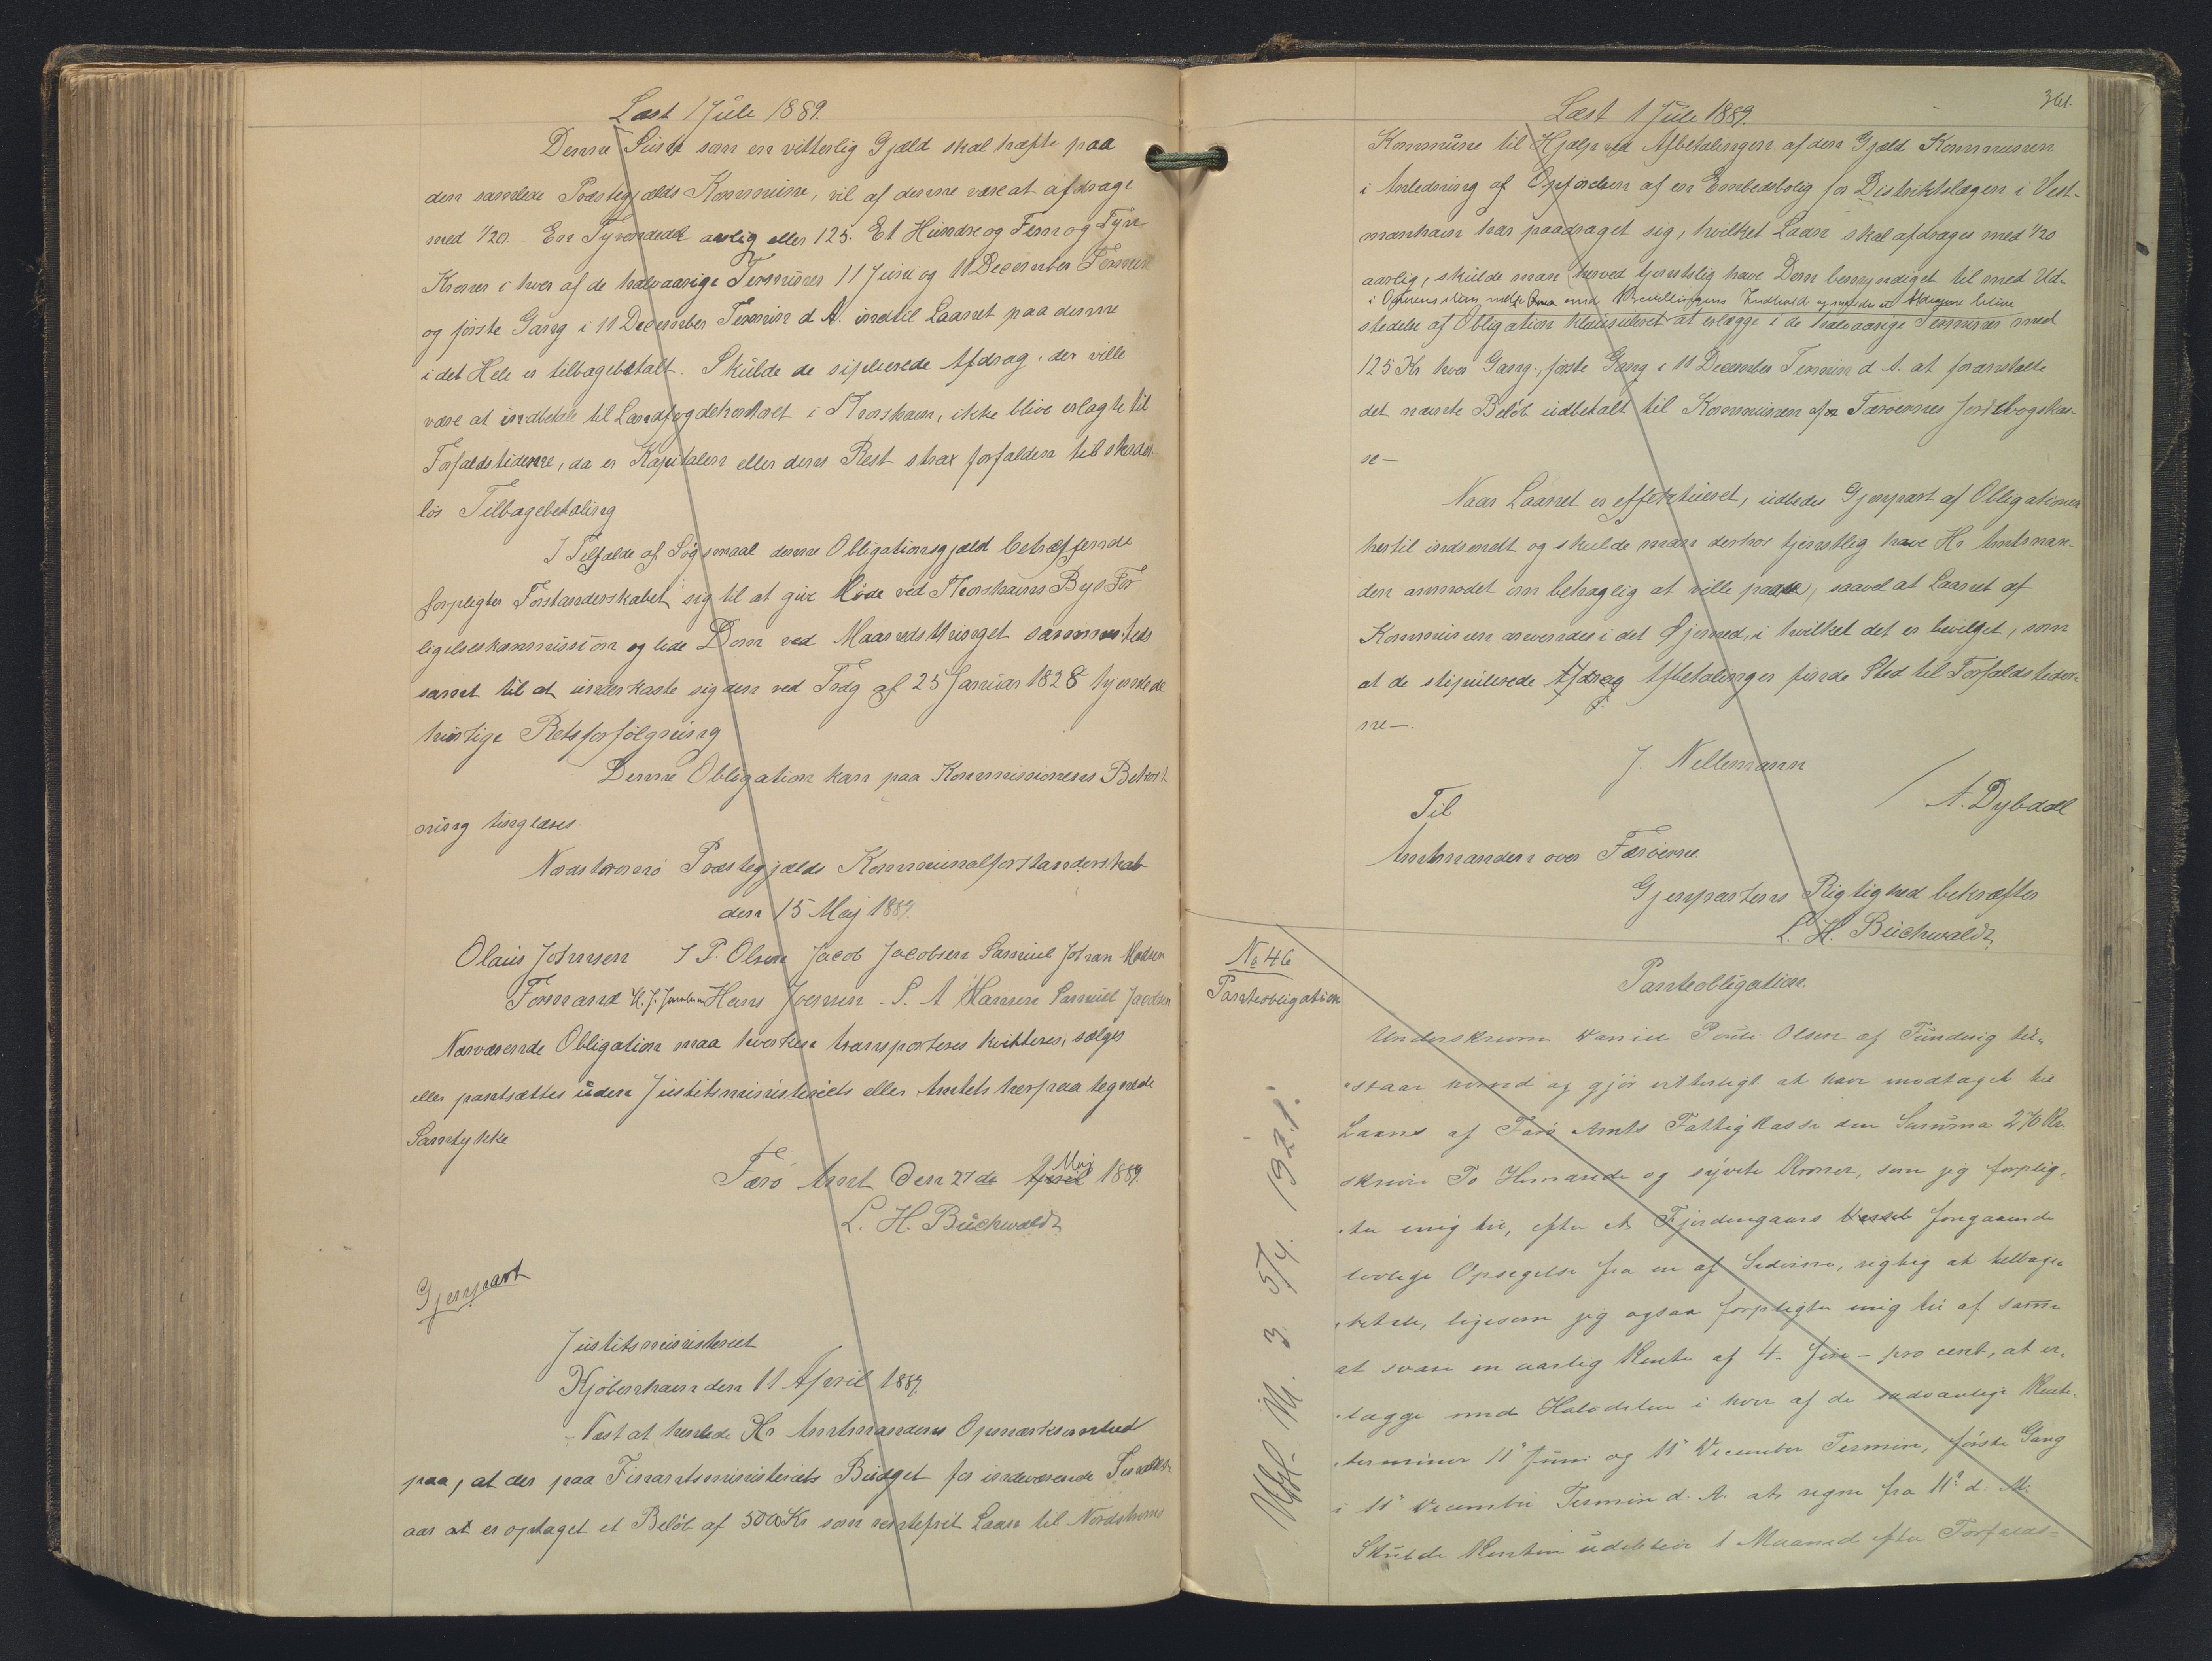 Læst 1 Juli 1889.
Denne Sum som en vitterlig Gjæld skal hæfte paa
den samlede Præstegjælds Kommune, vil af denne være at afdrage
med 1/20. En Tyvendedel aarlig eller 125. Et Hundre og Fem og Tyve
Kroner i hver af de halvaarige Terminer 11 Juni og 11 December Termin
og første Gang i 11 December Termin d A. indtil Laanet paa denne
i det Hele er tilbagebetalt. Skulde de sipulerede Afdrag, der ville
være at indbetale til Landfogdekontoret i Thorshavn, ikke blive erlagte til
Forfaldstiderne, da er Kapitalen eller dens Rest strax forfalden til skades-
løs Tilbagebetaling
I Tilfælde af Søgsmaal denne Obligationsgjæld betræffende
forpligter Forstanderskabet sig til at give Møde ved Thorshavns Byes For
ligelseskommission og lide Dom ved Maanedsthinget sammesteds
samt til at underkaste sig den ved Frdg af 25 Januar 1828 hjemlede
hurtige Retsforfølgning
Denne Obligation kan paa Kommissionens Bekost
ning tinglæses.
Nordstrømø Præstegjælds Kommunalforstanderskab
den 15 Maj 1889.
Olaus Johnsen J P. Olsen Jacob Jacobsen Samuel Johan Madsen
Formand H. J. Jacobsen Hans Joensen S. A Hansen Samuel Jacobsen
Nærværende Obligation maa hverken transporteres kvitteres, sælges
eller pantsættes uden Justitsministeriets eller Amtets herpaa tegnede
Samtykke
Maj
Færø Amt Den 27 de April 1889.
L. H. Buchwaldt
Gjenpart
Justitsministeriet
Kjøbenhavn den 11 April 1889
Næst at henlede Hr Amtmandens Opmærksomhed
paa, at der paa Finantsministeriets Budget for indeværende Finants-
aar at er optaget et Beløb af 5000 Kr som rentefrit Laan til Nordstrømø
361.
Læst 1 Juli 1889.
Kommune til Hjælp ved Afbetalingen af den Gjæld Kommunen
i Anledning af Opførelsen af en Embedsbolig for Distriktslægen i Vest-
manhavn har paadraget sig, hvilket Laan skal afdrages med 1/20
aarlig, skulde man herved tjenstlig have Dem bemyndiget til med Ud-
i Overensstem melse med Bevillingens Indhold og saaledes at Afdragene blive
stedelse af Obligation klausuleret at erlægge i de halvaarige Terminer med
125 Kr hver Gang, første Gang i 11 December Termin d A. at foranstalte
det nævnte Beløb udbetalt til Kommunen fra Færøernes Jordebogskas-
se—
Naar Laanet er effektueret, udbedes Gjenpart af Obligationen
hertil indsendt og skulde man derhos tjenstlig have Hr Amtman-
den anmodet om behagelig at ville paase, saavel at Laanet af
Kommunen anvendes i det Øjemed, i hvilket det er bevilget, som
at de stipulerede Afdrag Afbetalinger finde Sted til Forfaldstider-
ne—.
J. Nellemann
/ A. Dybdal
Til
Amtmanden over Færøerne.
Gjenpartens Rigtighed bekræfter
L. H. Buchwaldt
No 46
Panteobligation
Panteobligation.
Underskrevne Daniel Pouli Olsen af Sundvig til-
staar herved og gjør vitterligt at have modtaget til
Laans af Færø Amts Fattigkasse den Summa 270 Kr.
skriver To Hundrede og syvti Kroner, som jeg forplig-
ter mig til, efter et Fjerdingaars Varsel forgaaende
lovlige Opsigelse fra en af Siderne, rigtig at tilbage-
betale, ligesom jeg ogsaa forpligter mig til af samme
at svare en aarlig Rente af 4. fire – pro cent, at er-
lægge med Halvdelen i hver af de sædvanlige Rente-
terminer 11 Juni og 11 December Termin, første Gang
i 11 December Termin d. A. at regne fra 11 d. M.
Skulde Renten udeblive 1 Maaned efter Forfalds-
Udsl. M. 3 5/4. 1921.